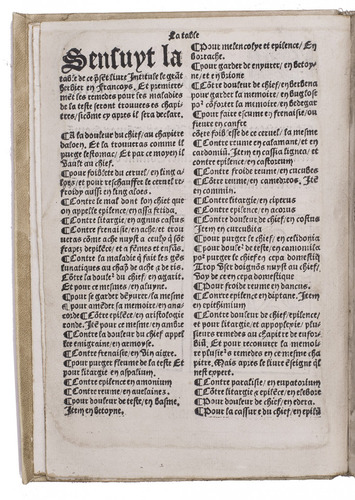 La table
Sensuyt la
table de ce p̄sēt liure Intitule le grāt
herbier en Francoys. Et premiere-
mēt les remedes pour les maladies
de la teste seront trouuees es chapi-
tres/sicōme cy apres il sera declare.
¶A la douleur du chief/au chapitre
daloen. Et la trouueras cōme il
purge lestomac/Et par ce moyen il
vault au chief.
¶pour foiblete du ceruel/en ling a-
lopes/et pour reschauffer le cernel re-
froidy aussi en lieu aloes.
¶Contre le mal dont son chiet que
on appelle epilence/en assa fetida.
¶Contre litargie/en agnus castus
¶Contre frenaisie/en ache/et trou-
ueras cōme ache nuyst a ceulx q̄ sōt
frapez depilēce/et a fēmes et enfās.
¶Contre la maladie q̄ fait les gēs
lunatiques au chap̄ de ache a de ris.
¶Cōtre la doule² du chief/en agaric.
Et pour ce mesmes/en aluyne.
¶pour se garder dēyurer/la mesme
¶pour amēder sa memoire/en ana-
corde ¶Cōtre epilēce/en aristologie
ronde. Itē pour ce mesme/en ambre
¶Contre la douleur du chief appel
lee emigraine/en armoyse.
¶Contre frenaisie/en vin aigre.
¶pour purger fleume de la teste Et
pour litargie/en aspalium.
¶Contre epilence/en amonium
¶Contre reume/en auelaines.
¶pour douleur de teste/en basme.
Item en betoyne.
¶Pour melencolye et epilence/En
bortache.
¶pour garder de enyurer/en betoy-
ne/et en brione
¶Cōtre douleur de chief/en berbena
pour garder la memoire/en buglose
po² cōforter la memoire/en bedegar
¶pour faire lescume/frenaisie/ou
fieure/en canfre
cōtre foiblesse de ce ceruel/la mesme
¶Contre reume/en calamant/et en
cardomū. Item en cassia lignea/et
contre epilence/en castorium
¶Contre froide reume/en cucubes
¶Cōtre reume/en camedreos. Itē
en commin.
¶Contre litargie/en cipterus
¶Contre epilence/en acorus
¶Contre douleur de chief/en costus
Item en cucurbita
¶pour purger le chief/en celidonia
¶pour doule² de teste/en camomilla
po² purger le chief/en cepa domestiq̄
Trop vser doignōs nuyst au chief/
Soy de ce en cepa domestique
¶Pour froide reume/en daucus.
¶Contre epilence/en diptane. Item
en epithimium
¶Contre douleur de chief/epilence/
et pour litargie/et appoplexie/plu-
sieurs remedes au chapitre de eufor-
biū. Et pour recouurer la memoi-
re plusie²s remedes en ce mesme cha
pitre. Mais apres le liure ēseigne q̄l
nest expert.
¶Contre paralisie/en eupatorium
¶Cōtre litargie/epilēce/en elebore
¶Pour douleur de chief/en edera.
¶Pour la cassure du chief/en epilū